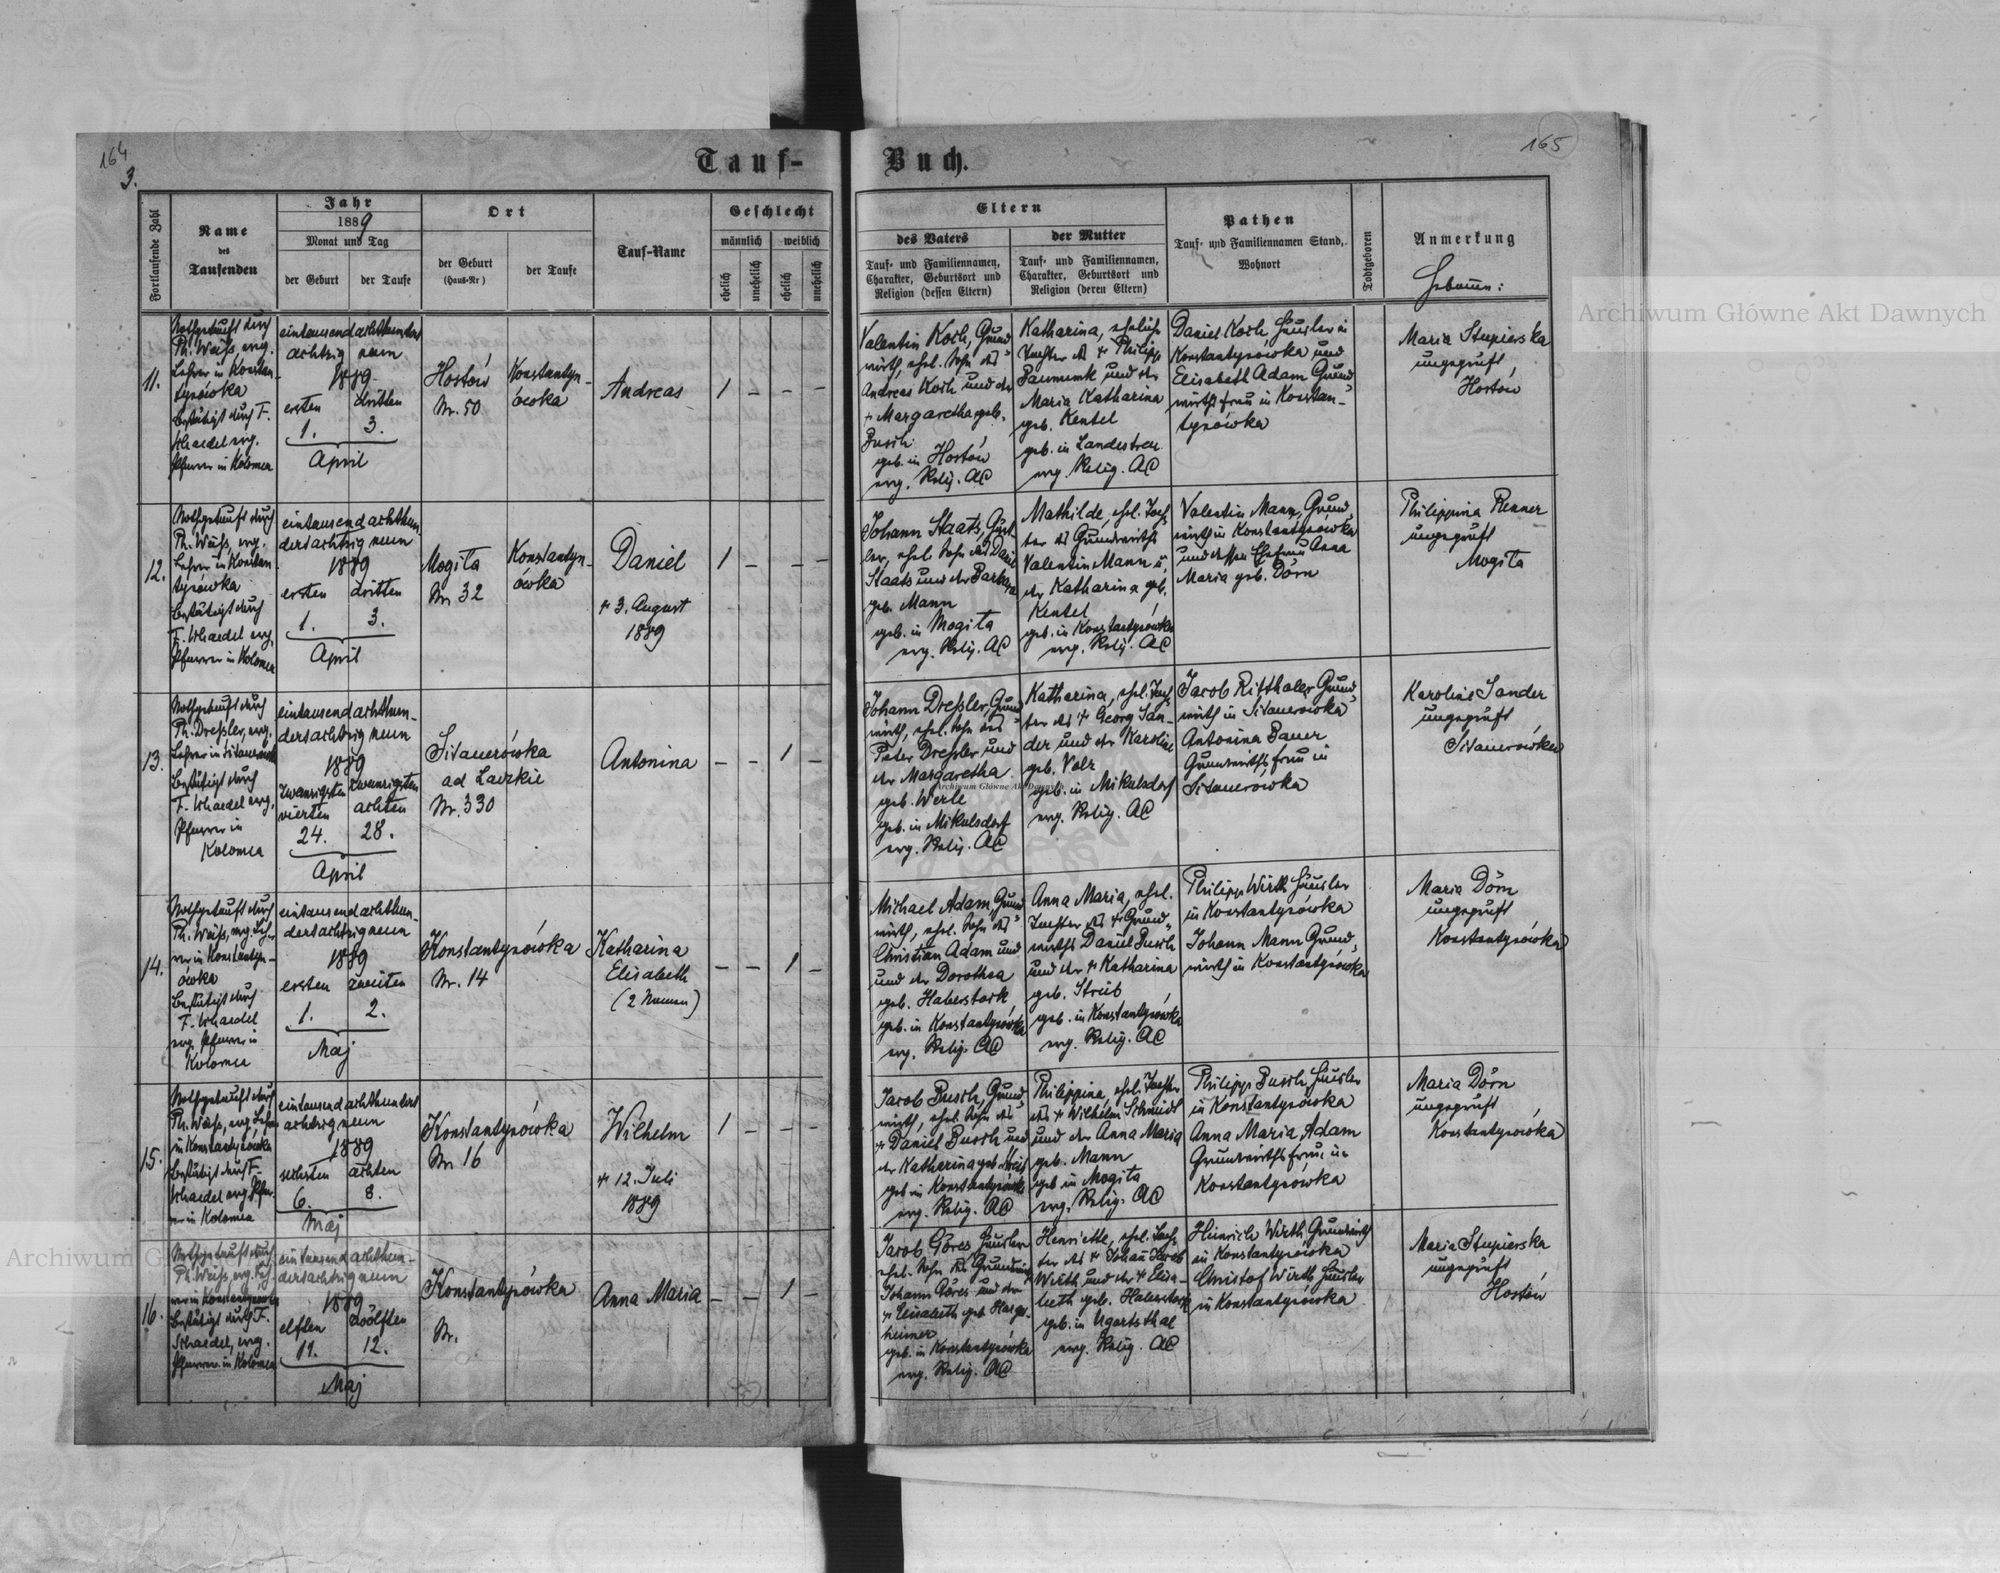 164
3.
Tauf-
Fortlaufende Zahl
Name
des
Taufenden
Jahr
1889
Monat und Tag
der Geburt
der Taufe
Ort
der Geburt
(Haus-Nr)
der Taufe
Tauf-Name
Geschlecht
männlich
weiblich
ehelich
unehelich
ehelich
unehelich
11.
Nothgetauft durch
Ph. Weiß, evg.
Lehrer in Konstan-
tysówka
Bestätigt durch F.
Schaedel evg.
Pfarrer in Kolomea
eintausendachthundert
achtzig neun
1889
ersten
dritten
1.
3.
April
Hostów
Nr. 50
Konstantyn-
ówka
Andreas
1 – – –
12.
Nothgetauft durch
Ph. Weiß, evg.
Lehrer in Konstan-
tysówka
Bestätigt durch
F. Schaedel evg.
Pfarrer in Kolomea
eintausendachthun-
dertachtzig neun
1889
ersten
dritten
1.
3.
April
Mogiła
Nr. 32
Konstantyn-
ówka
Daniel
+ 3. August
1889
1 – – –
13.
Nothgetauft durch
Ph. Dreßler, evg.
Bestätigt durch
F. Schaedel evg.
Pfarrer in
Kolomea
eintausendachthun-
dertachtzig neun
1889
zwanzigsten
zwanzigsten
vierten
achten
24.
28.
April
Sitauerówka
ad Lavzkie
Nr. 330
Antonina
– – 1 –
14.
Nothgetauft durch
Ph. Weiß, evg. Leh-
rer in Konstantyn-
ówka
Bestätigt durch
F. Schaedel
evg. Pfarrer in
Kolomea
eintausendachthun-
dertachtzig neun
1889
ersten
zweiten
1.
2.
Maj
Konstantysówka
Nr. 14
Katharina
Elisabeth
(2 Namen)
– – 1 –
15.
Nothgetauft durch
Ph. Weiß, evg. Lehrer
in Konstantysówka
Bestätigt durch F.
Schaedel evg. Pfar-
rer in Kolomea
eintausendachthundert
achtzig neun
1889
sechsten
achten
6.
8.
Maj
Konstantysówka
Nr. 16
Wilhelm
+ 12. Juli
1889
1 – – –
16.
Nothgetauft durch
Ph. Weiß, evg. Leh-
rer in Konstantysówka
Bestätigt durch F.
Schaedel, evg.
Pfarrer in Kolomea
eintausendachthun-
dertachtzig neun
1889
elften
zwölften
11.
12.
Maj
Konstantysówka
Nr.
Anna Maria
– – 1 –
165
Buch.
Eltern
des Vaters
Tauf- und Familiennamen,
Charakter, Geburtsort und
Religion (dessen Eltern)
der Mutter
Tauf- und Familiennamen,
Charakter, Geburtsort und
Religion (deren Eltern)
Pathen
Tauf- und Familiennamen Stand,
Wohnort
Todtgeboren
Anmerkung
Hebamme:
Valentin Koch, Grund-
wirth ehel. Sohn des
Andreas Koch und der
+ Margaretha geb.
Busch
geb. in Hostów
evg. Relig. AC
Katharina, eheliche
Tochter des + Philipp
Baumunk und der
Maria Katharina
geb. Kentel
geb. in Landestreu
evg. Relig. AC
Daniel Koch Häusler in
Konstantysówka und
Elisabeth Adam Grund-
wirthsfrau in Konstan-
tysówka
Maria Stupierska
ungeprüft
Hostów
Johann Staats, Häus-
ler, ehel. Sohn des Daniel
Staats und der Barbara
geb. Mann
geb. in Mogiła
evg. Relig. AC
Mathilde, ehel. Toch-
ter des Grundwirths
Valentin Mann u.
der Katharina geb.
Kentel
geb. in Konstantysówka
evg. Relig. AC
Valentin Mann, Grund-
wirth in Konstantysówka
und dessen Ehefrau Anna
Maria geb. Dörn
Philippina Renner
ungeprüft
Mogiła
Johann Dreßler, Grund-
wirth, ehel. Sohn des
Peter Dreßler und
der Margaretha
geb. Werle
geb. in Mikulsdorf
evg. Relig. AC
Katharina, ehel. Toch-
ter des + Georg San-
der und der Karoline
geb. Volz
geb. in Mikulsdorf
evg. Relig. AC
Jacob Ritthaler Grund-
wirth in Sitauerowka
Antonina Bauer
Grundwirthsfrau in
Sitauerówka
Karoline Sander
ungeprüft
Sitauerówka
Michael Adam, Grund-
wirth, ehel. Sohn des
Christian Adam und
und der Dorothea
geb. Haberstock
geb. in Konstantysówka
evg. Relig. AC
Anna Maria, ehel.
Tochter des + Grund-
wirths Daniel Busch
und der + Katharina
geb. Streib
geb. in Konstantysówka
evg. Relig. AC
Philipp Wirth Häusler
in Konstantysówka
Johann Mann Grund-
wirth in Konstantysówka
Maria Dörn
ungeprüft
Konstantysówka
Jacob Busch, Grund-
wirth, ehel. Sohn des
+ Daniel Busch und
der Katharina geb. Streib
geb. in Konstantysówka
evg. Relig. AC
Philippina, ehel. Tochter
des + Wilhelm Schmidt
und der Anna Maria
geb. Mann
geb. in Mogiła
evg. Relig. AC
Philipp Busch, Häusler
in Konstantysówka
Anna Maria Adam
Grundwirthsfrau in
Konstantysówka
Maria Dörn
ungeprüft
Konstantysówka
Jacob Göres Häusler
ehel. Sohn des Grundwirths
Johann Göres und der
+ Elisabeth geb. Harges-
heimer
geb. in Konstantysówka
evg. Relig. AC
Henriette, ehel. Toch-
ter des + Johann Jacob
Wirth und der + Elisa-
beth geb. Haberstock
geb. in Ugartsthal
evg. Relig. AC
Heinrich Wirth, Grundwirth
in Konstantysówka
Christof Wirth Häusler
in Konstantysówka
Maria Stupierska
ungeprüft
Hostów
Archiwum Główne Akt Dawnych
Archiwum Główne Akt Dawnych
Archiwum Główne Akt Dawnych